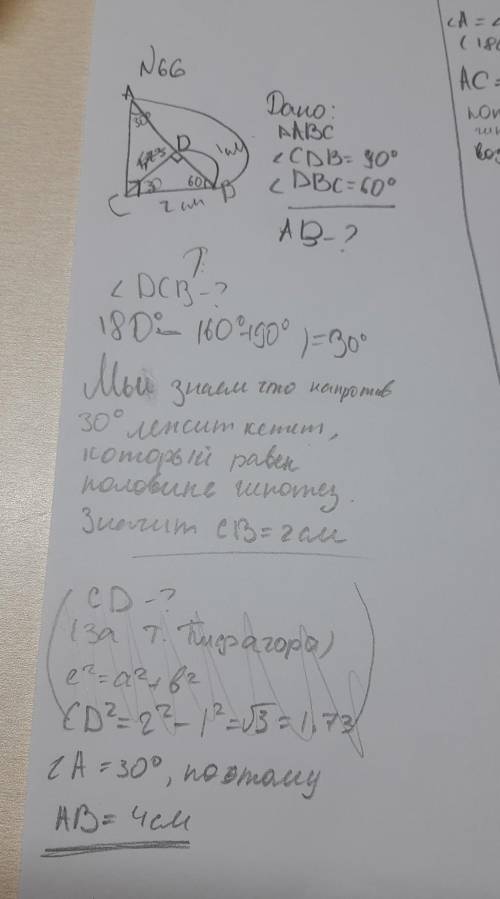 N66
A
30°
D
1 см
30
60
C
B
2 см
Дано:
△ABC
∠CDB = 90°
∠DBC = 60°
AB - ?
∠DCB - ?
180° - (60°+90°) = 30°
Мы знаем что напротив
30° лежит катет,
который равен
половине гипотез.
Значит CB = 2 см
CD - ?
(За т. Пифагора)
c² = a² + b²
CD² = 2² - 1² = √3 = 1,73
∠A = 30°, поэтому
AB = 4 см
∠A =
(18
AC =